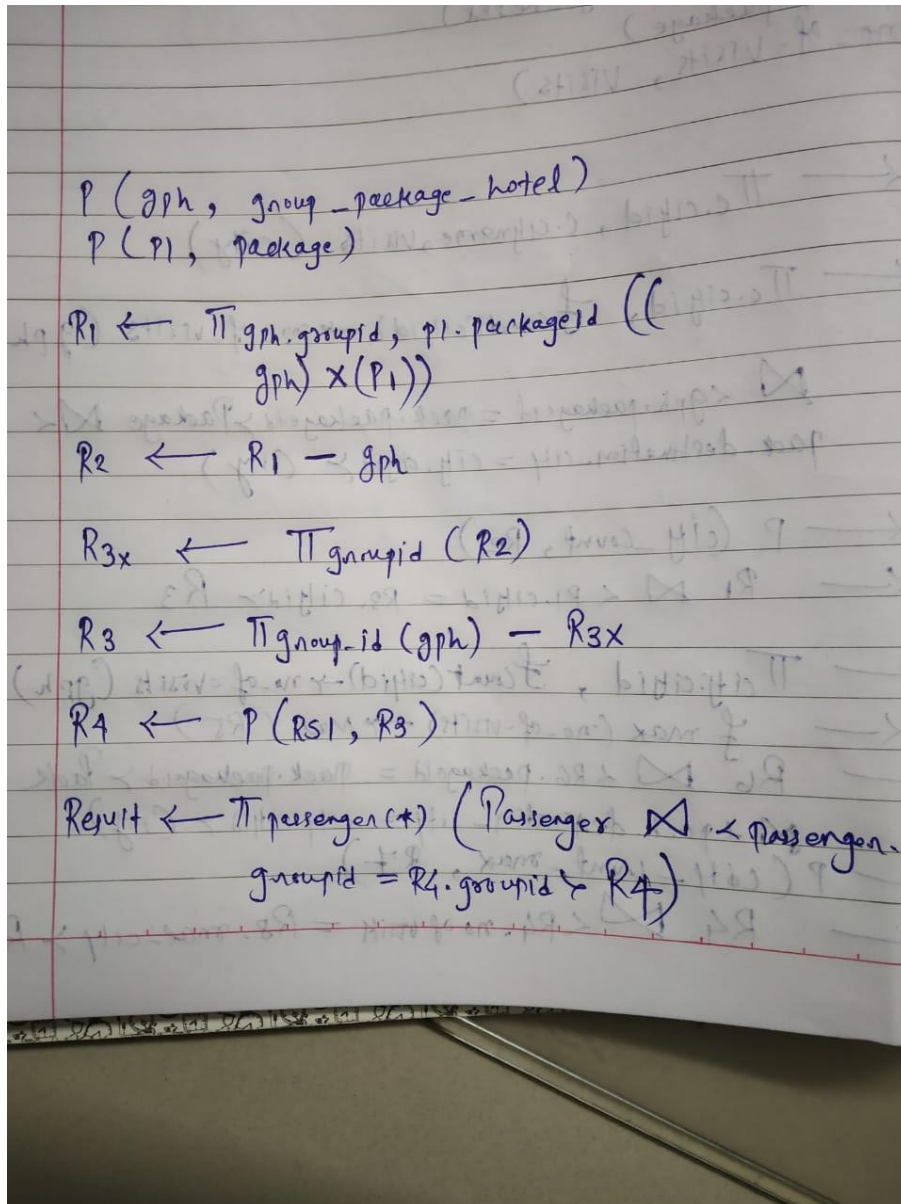 P (gph, group_package_hotel)
P (P1, package)
R1 ← π gph.groupid, p1.packageid ((
gph) X (P1))
R2 ← R1 – gph
R3x ← π groupid (R2)
R3 ← π group_id (gph) – R3x
R4 ← P (RS1, R3)
Result ← π passenger(*) (Passenger ⋈ < passenger.
groupid = R4.groupid > R4)